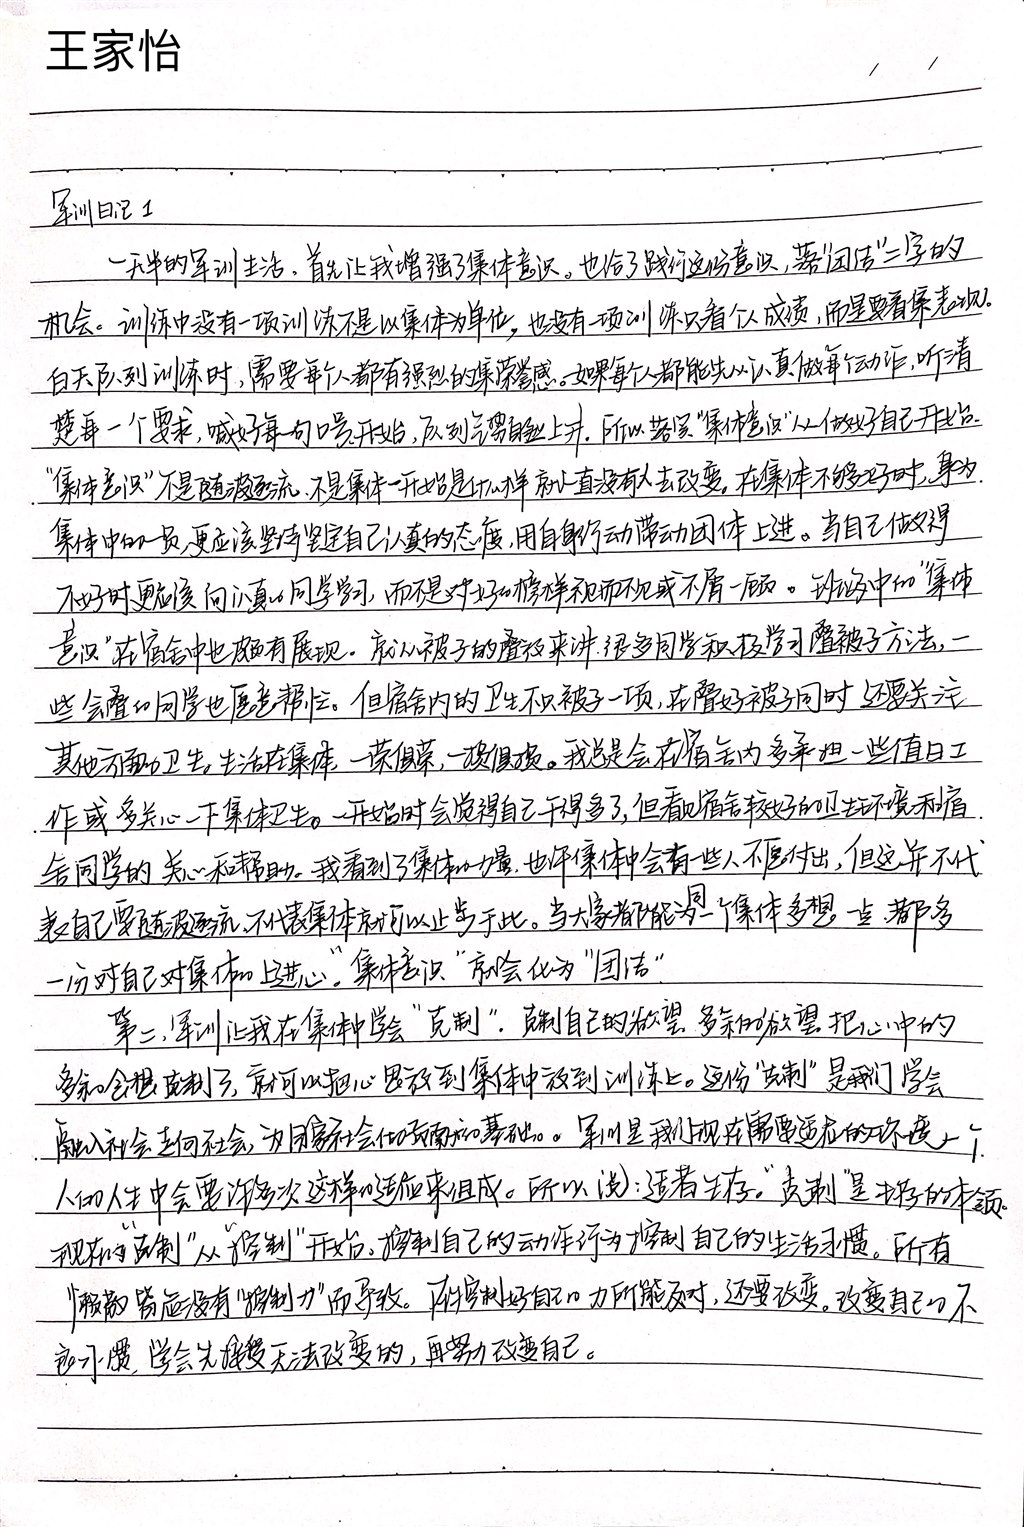 王家怡
军训日记1
一天半的军训生活,首先让我增强了集体意识。也给了践行这份意识,落"团结"二字的
机会。训练中没有一项训练不是以集体为单位,也没有一项训练只看个人成绩,而是要看集表现。
白天队列训练时,需要每个人都有强烈的集荣誉感。如果每个人都能先从认真做每个动作,听清
楚每一个要求,喊好每一句口号开始,队列气势自然上升.所以落实"集体意识"从做好自己开始.
"集体意识"不是随波逐流,不是集体一开始是什么样就一直没有人去改变。在集体不够好时,身为
集体中的一员,更应该坚持坚定自己认真的态度,用自身行动带动团体上进。当自己做得
不好时更应该向认真的同学学习,而不是对好的榜样视而不见或不屑一顾。训练中的"集体
意识"在宿舍中也颇有展现。就从被子的叠放来讲.很多同学积极学习叠被子方法,一
些会叠的同学也愿意帮忙。但宿舍内的卫生不只被子一项,在叠好被子同时还要关注
其他方面的卫生。生活在集体,一荣俱荣,一损俱损。我总是会在宿舍内多承担一些值日工
作或多关心一下集体卫生。一开始时会觉得自己干得多了,但看见宿舍较好的卫生环境和宿
舍同学的关心和帮助。我看到了集体的力量,也许集体中会有一些人不愿付出,但这并不代
表自己要随波逐流,不代表集体就可以止步于此。当大家都能为同一个集体多想一点,都多
一份对自己对集体的上进心"集体意识"就会化为"团结".
第二,军训让我在集体中学会"克制".克制自己的欲望,多余的欲望,把心中的
多余的会想克制了,就可以把心思放到集体中放到训练上。这份"克制"是我们学会
融入社会走向社会,为国家社会做贡献的基础。军训是我们现在需要适应的环境,一个
人的人生中会要许多次这样的适应来组成。所以说:适者生存。"克制"是生存的本领。
现在的"克制"从"控制"开始。控制自己的动作行为控制自己的生活习惯。所有
懒散皆应没有"控制力"而导致。控制好自己的力所能及时,还要改变。改变自己的不
良习惯,学会先接受无法改变的,再努力改变自己。